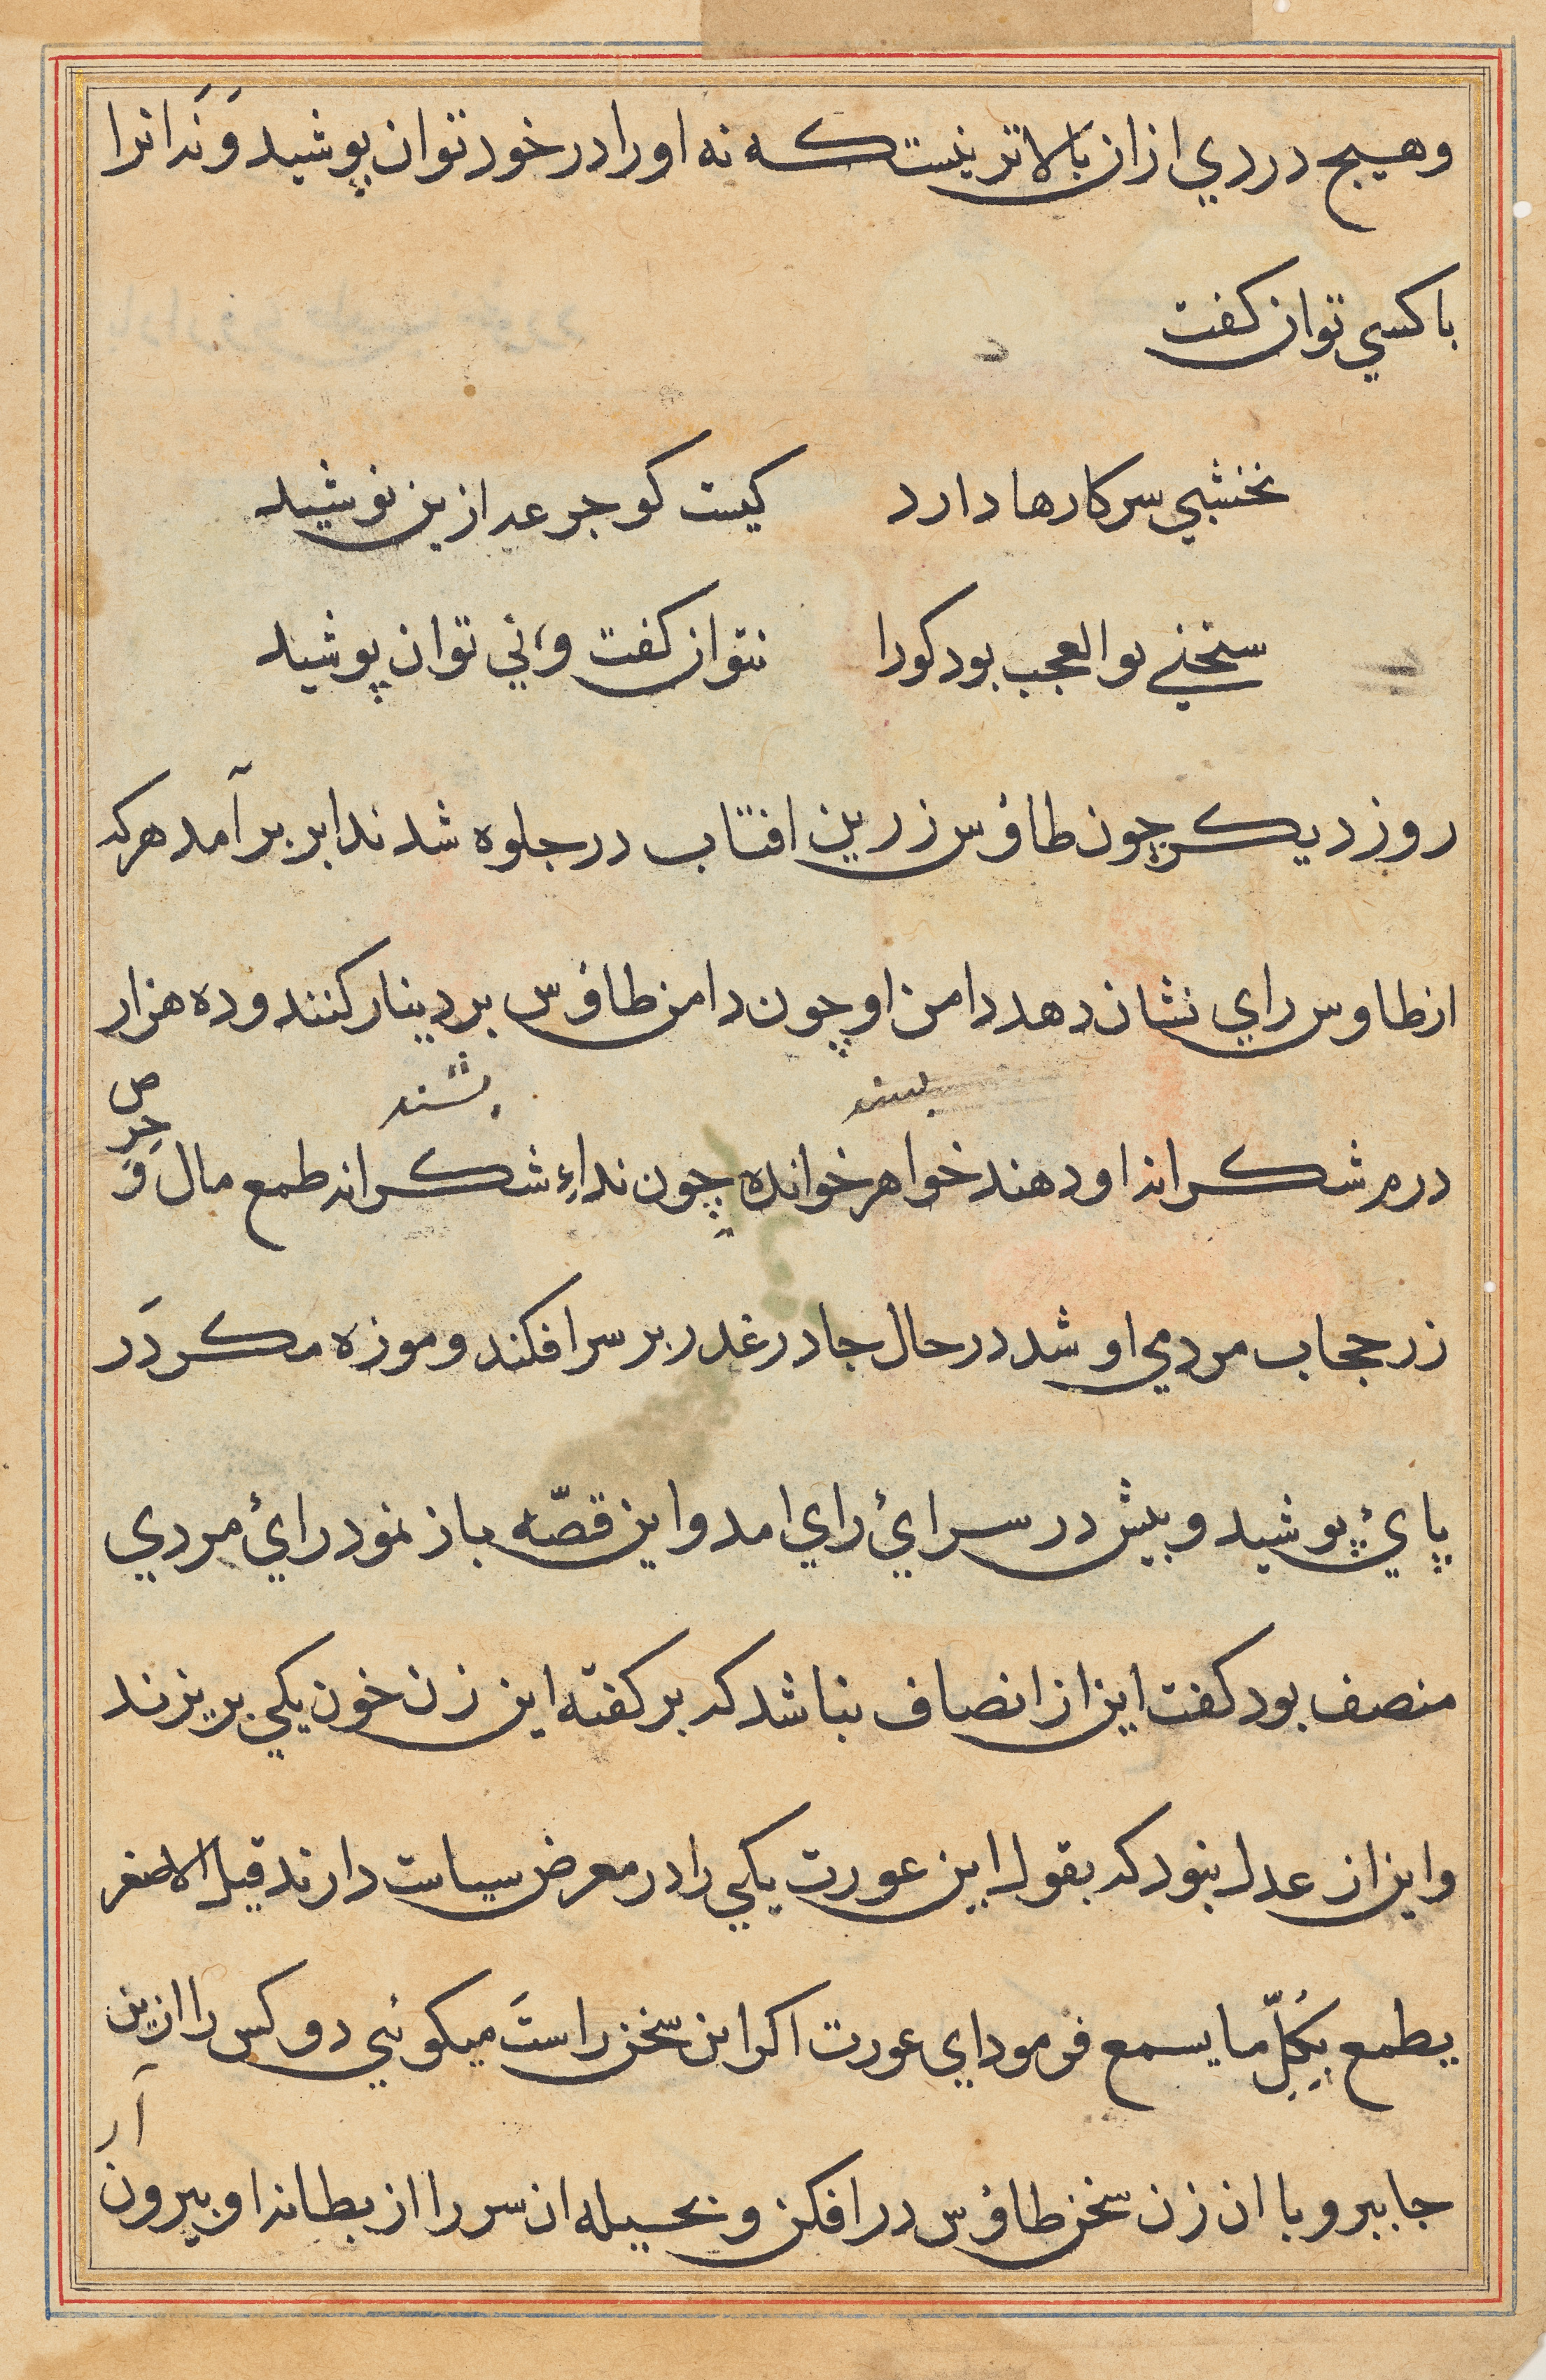 وهیچ دردي ازان بالاتر نیست که نه اورا در خود توان پوشید وَ نَه انرا
با کسي توان کفت
نخشبي سرکارها دارد کیست کو جرعه ازین نوشید
سخني بوالعجب بود کورا نتوان کفت و ني توان پوشید
روز دیکر چون طاؤس زرین افتاب در جلوه شد ندا بر بر آمد هر که
از طاوس راي نشان دهد دامن او چون دامن طاؤس بر دینار کنند و ده هزار
بشنید
درم شکرانه او دهند خواهر خوانده چون نداءِ شکرانه طمع مال و حرص
زر حجاب مردمي او شد در حال جادر غدر بر سر افکند و موزه مکر دَر
پائ پوشید و پیش در سرائ راي امد و این قصّه باز نمود رائ مردي
منصف بود کفت این از انصاف نباشد که بر کفته این زن خون یکي بریزند
و این از عدل نبود که بقول این عورت یکي را در معرض سیاست دارند قیل الاصغر
یطمع بِکُلّ ما یسمع فرمود اي عورت اکر این سخن راستَ میکوئي دو کس را ازین
جا ببر و با ان زن سخن طاؤس در افکن و بحیله ان سر را از بطانه او بیرون آر